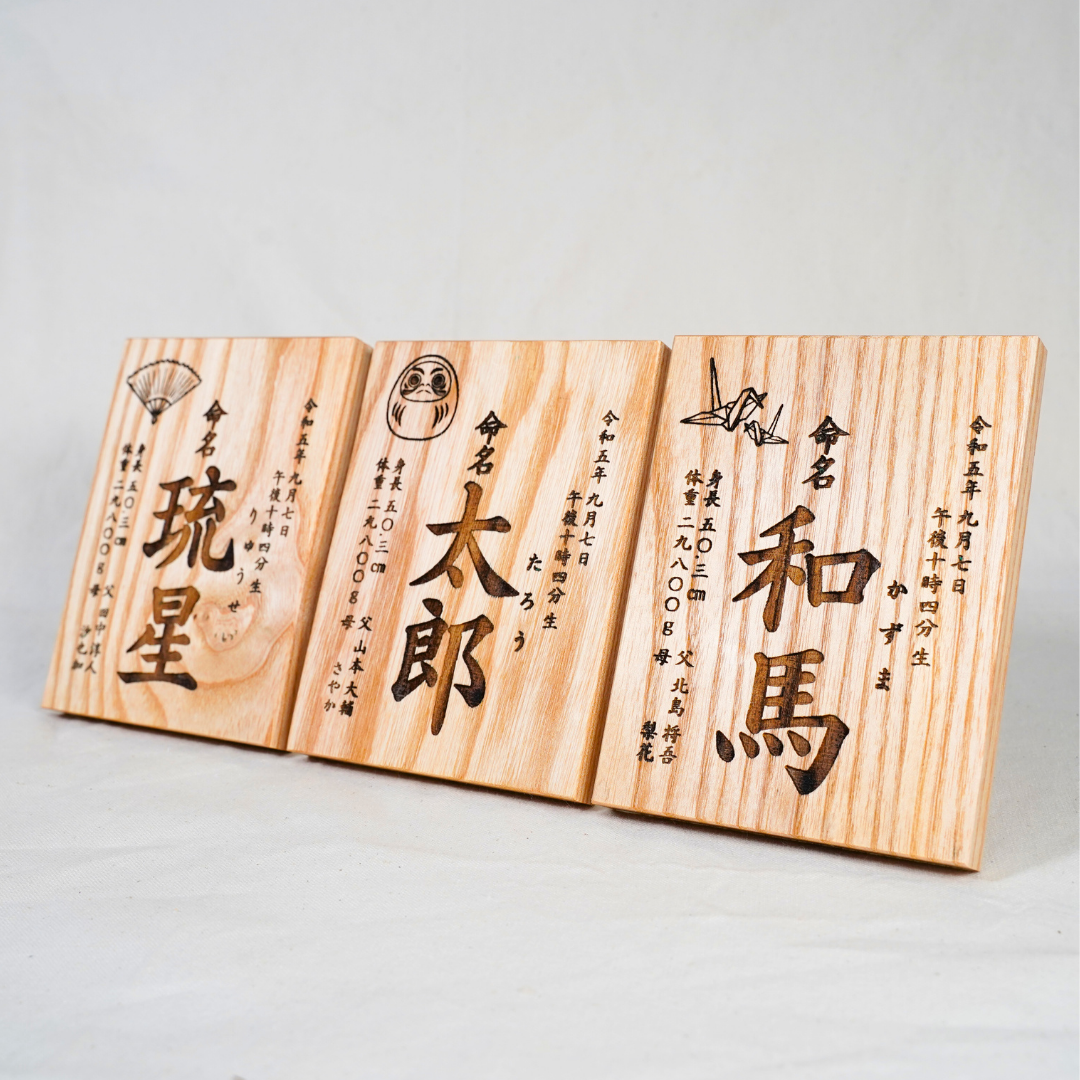 令和五年 九月七日
午後十時四分 生
りゅうせい
命名
琉星
身長 五〇・三㎝
体重 二九八〇〇g
父 田中
母 沙也加
令和五年 九月七日
午後十時四分 生
たろう
命名
太郎
身長 五〇・三㎝
体重 二九八〇〇g
父 山本 大輔
母 さやか
令和五年 九月七日
午後十時四分 生
かずま
命名
和馬
身長 五〇・三㎝
体重 二九八〇〇g
父 北島 将吾
母 梨花